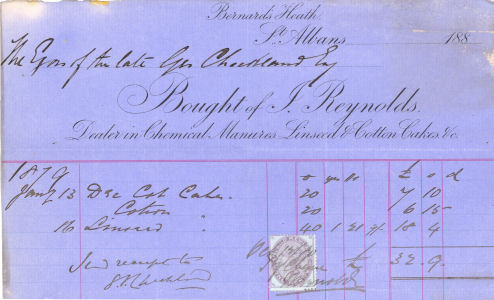 Bernard's Heath,
St Albans 188
The Exors of the late Geo Checkland Esq
Bought of J. Reynolds.
Dealer in Chemical Manures Linseed & Cotton Cakes &c.
£ s d
1879
Jany 13 Dec Cot Cakes 20 7 10
Cotton 20 6 15
16 Linseed " 40 1 21 7/- 18 4
32 9
Send receipt to